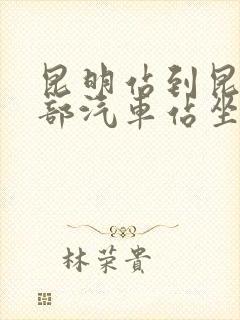 昆明佔到昆
部汽車佔坐
林荣貴